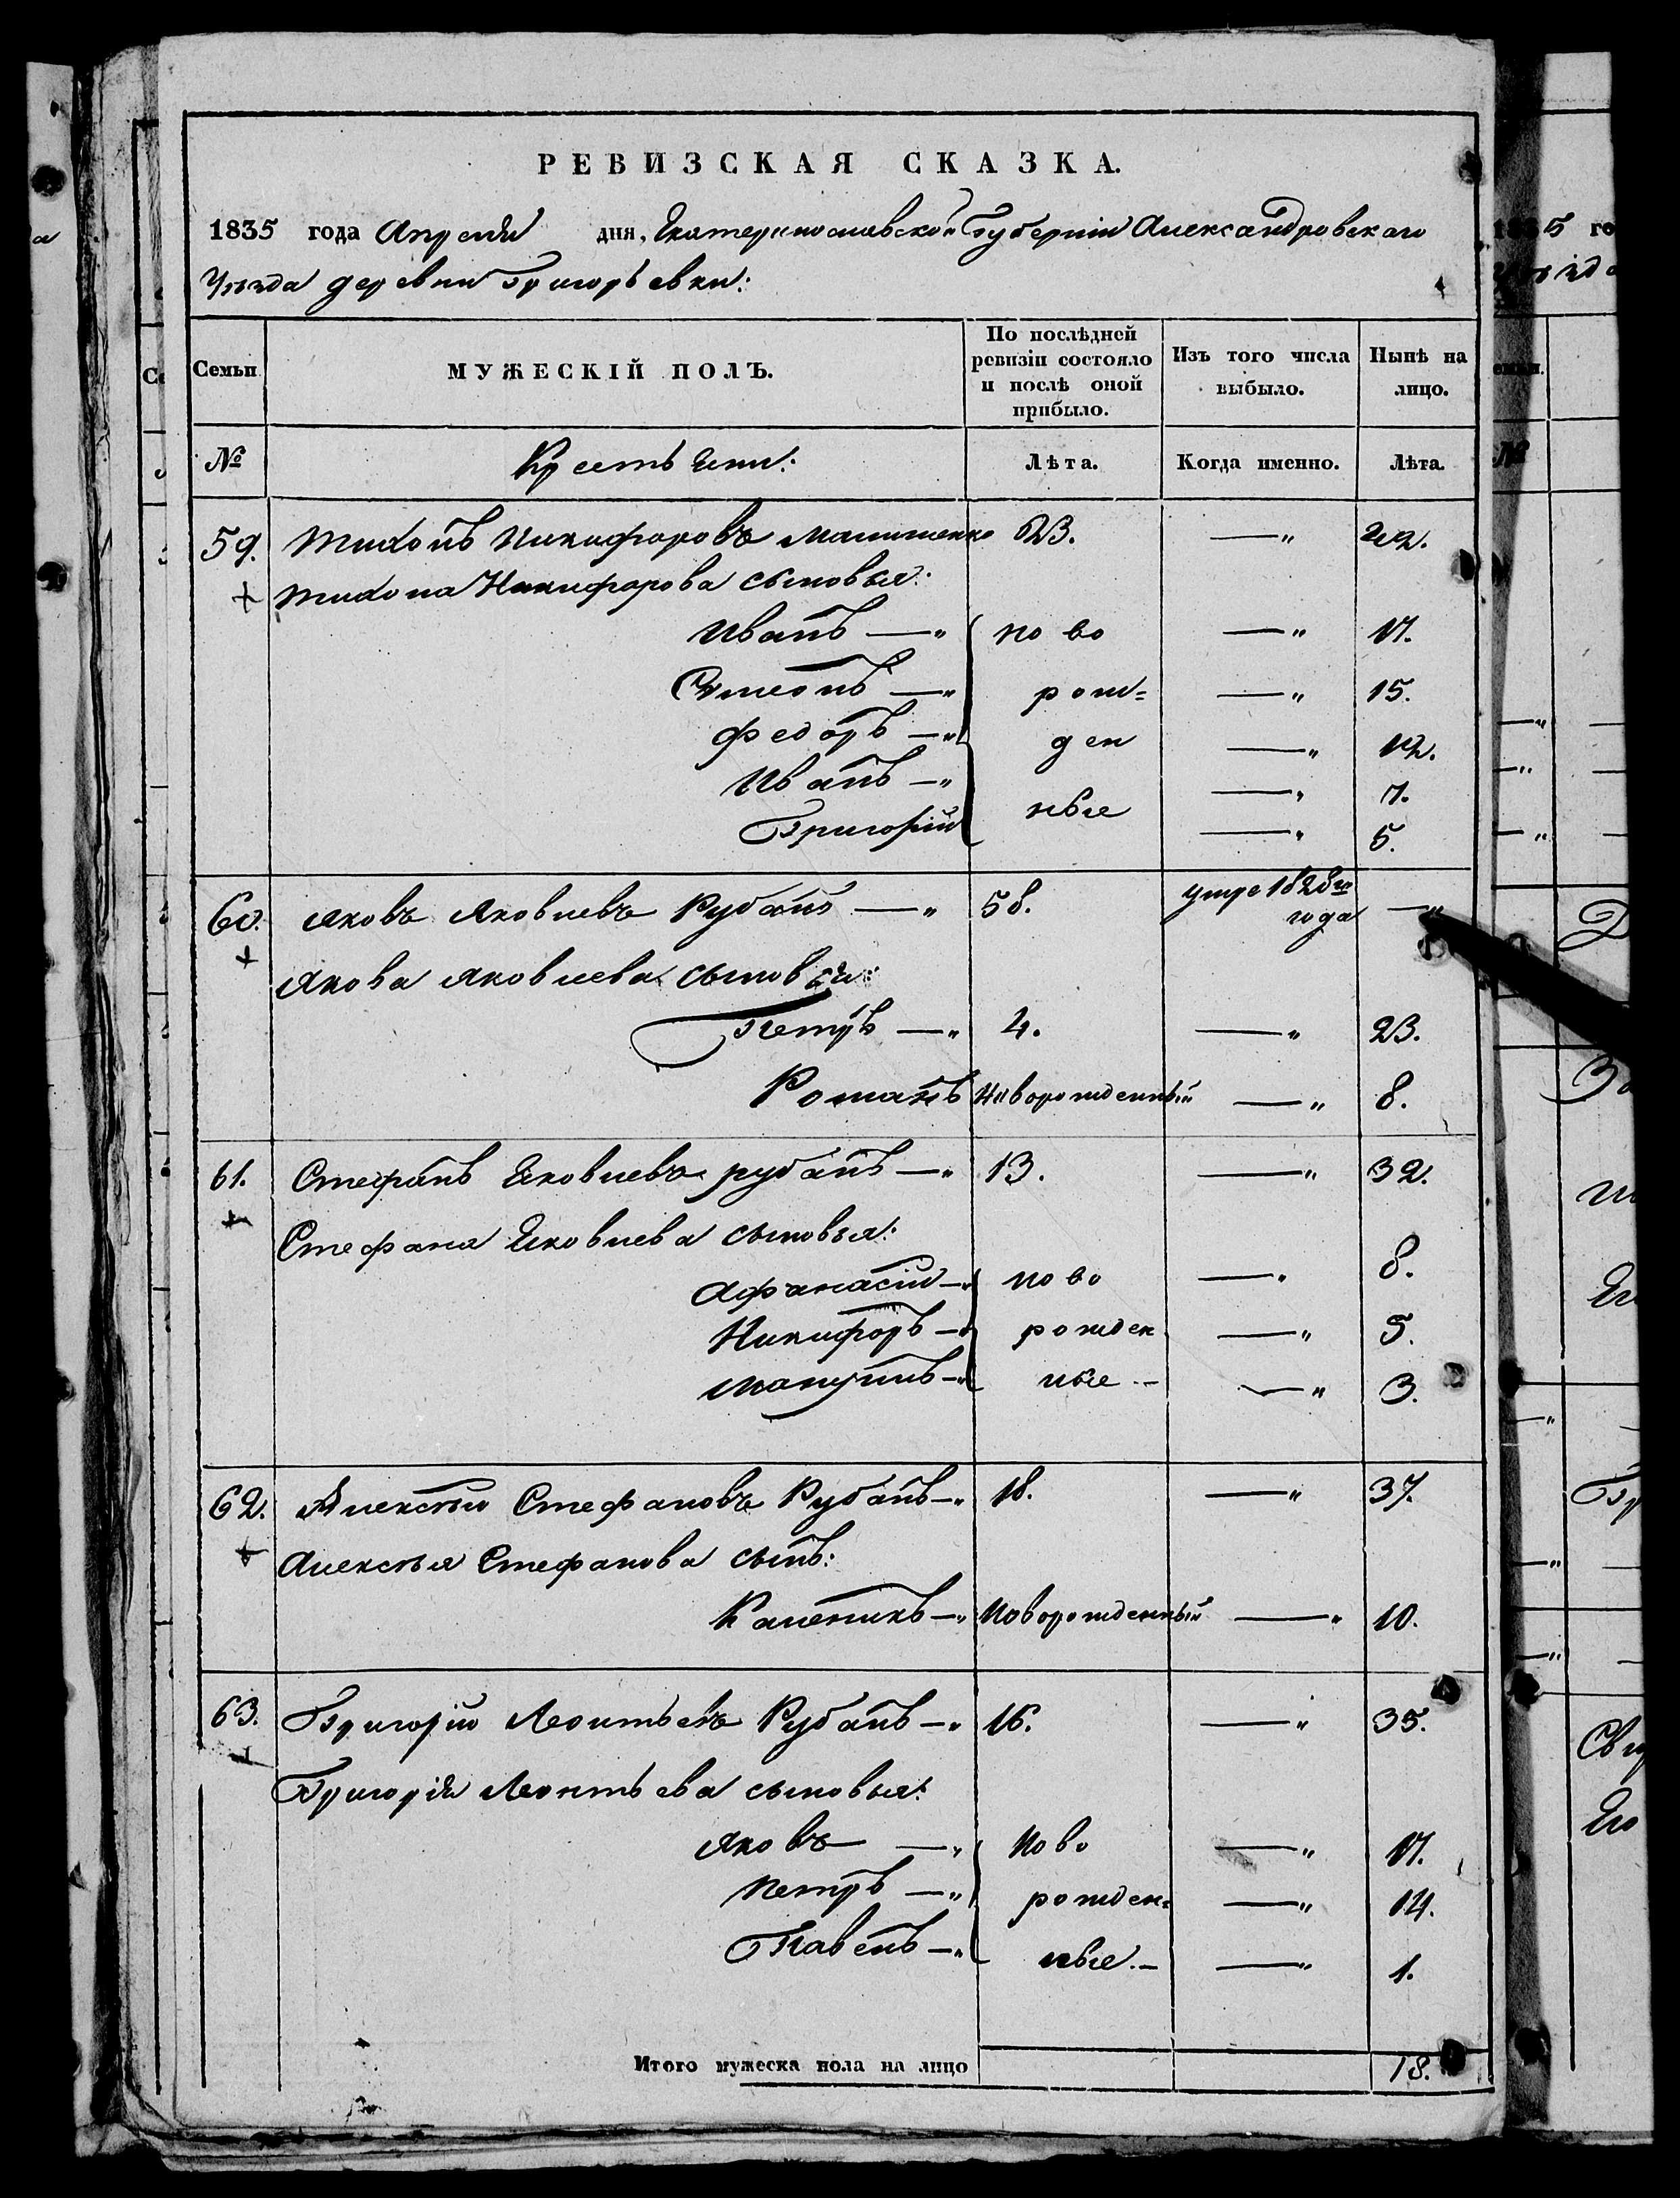 РЕВИЗСКАЯ СКАЗКА.
1835 года Апреля дня, Екатеринославской Губерніи Александровскаго
Уѣзда деревни Григорьевки:
Семьи МУЖЕСКІЙ ПОЛЪ. По послѣдней ревизіи состояло и послѣ оной прибыло. Изъ того числа выбыло. Нынѣ на лицо.
№ Крестьяни: Лѣта. Когда именно. Лѣта.
59. Тихонъ Никифоровъ 23. —„ 42.
Тихона Никифорова сыновья:
Иванъ —„ ново —„ 17.
Симеонъ —„ рож= —„ 15.
Федоръ —„ ден —„ 12.
Иванъ —„ ные —„ 7.
Григорій —„ 5.
60. Яковъ Яковлевъ Рубанъ —„ 58. умре 1828го года —„
Якова Яковлева сыновья:
Петръ —„ 4. —„ 23.
Романъ Новорожденный —„ 8.
61. Стефанъ Яковлевъ рубанъ —„ 13. —„ 32.
Стефана Яковлева сыновья:
Афанасій —„ ново —„ 8.
Никифоръ —„ рожден —„ 5.
—„ ные —„ 3.
62. Алексѣй Стефановъ Рубанъ —„ 18. —„ 37.
Алексѣя Стефанова сынъ:
Каленикъ —„ Новорожденный —„ 10.
63. Григорій Леонтьевъ Рубанъ —„ 16. —„ 35.
Григорія Леонтьева сыновья:
Яковъ —„ Ново —„ 17.
Петръ —„ рожден= —„ 14.
Павелъ —„ ные —„ 1.
Итого мужеска пола на лицо 18.